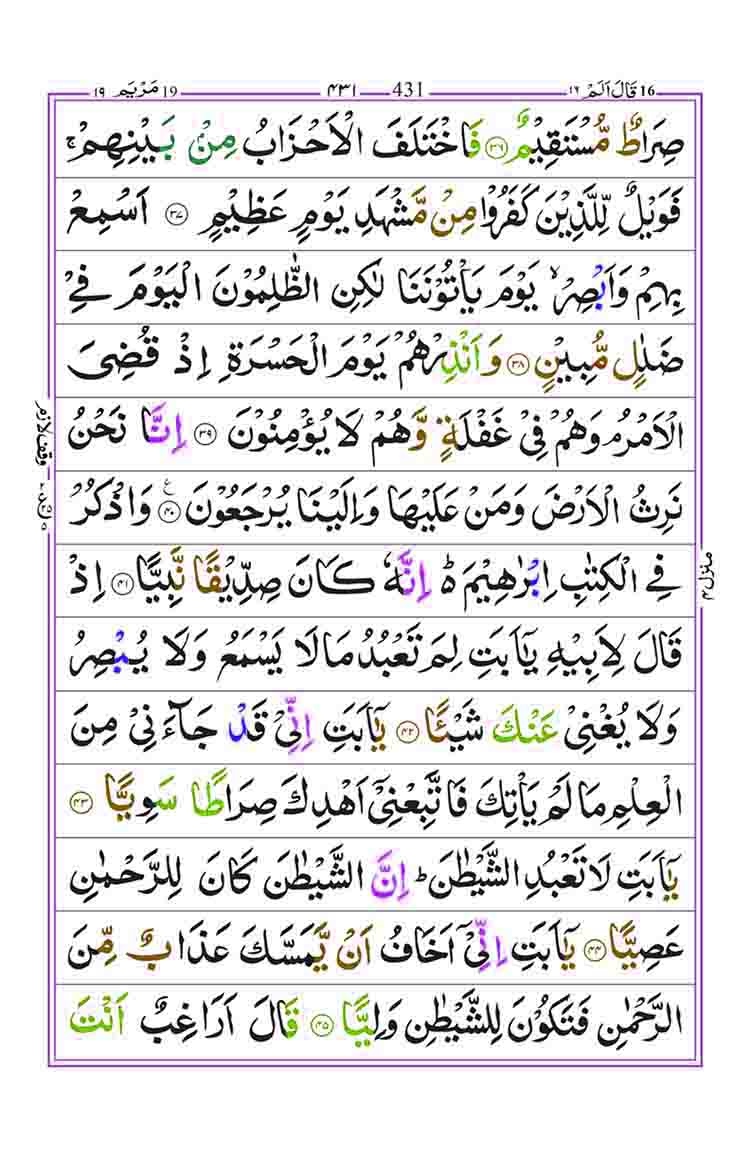 19 مَرْيَم ١٩ ٤٣١ 431 16 قَالَ اَلَمْ ١٦
صِرَاطٌ مُّسْتَقِيْمٌ ﴿۳۶﴾ فَاخْتَلَفَ الْاَحْزَابُ مِنْۢ بَيْنِهِمْ ۚ
فَوَيْلٌ لِّلَّذِيْنَ كَفَرُوْا مِنْ مَّشْهَدِ يَوْمٍ عَظِيْمٍ ﴿۳۷﴾ اَسْمِعْ
بِهِمْ وَاَبْصِرْ ۙ يَوْمَ يَاْتُوْنَنَا لٰكِنِ الظّٰلِمُوْنَ الْيَوْمَ فِيْ
ضَلٰلٍ مُّبِيْنٍ ﴿۳۸﴾ وَاَنْذِرْهُمْ يَوْمَ الْحَسْرَةِ اِذْ قُضِىَ
الْاَمْرُ ۘ وَهُمْ فِيْ غَفْلَةٍ وَّهُمْ لَا يُؤْمِنُوْنَ ﴿۳۹﴾ اِنَّا نَحْنُ
نَرِثُ الْاَرْضَ وَمَنْ عَلَيْهَا وَاِلَيْنَا يُرْجَعُوْنَ ﴿۴۰﴾ ع وَاذْكُرْ
فِى الْكِتٰبِ اِبْرٰهِيْمَ ؕ اِنَّهٗ كَانَ صِدِّيْقًا نَّبِيًّا ﴿۴۱﴾ اِذْ
قَالَ لِاَبِيْهِ يٰۤاَبَتِ لِمَ تَعْبُدُ مَا لَا يَسْمَعُ وَلَا يُبْصِرُ
وَلَا يُغْنِيْ عَنْكَ شَيْـًٔا ﴿۴۲﴾ يٰۤاَبَتِ اِنِّيْ قَدْ جَآءَنِيْ مِنَ
الْعِلْمِ مَا لَمْ يَاْتِكَ فَاتَّبِعْنِيْۤ اَهْدِكَ صِرَاطًا سَوِيًّا ﴿۴۳﴾
يٰۤاَبَتِ لَا تَعْبُدِ الشَّيْطٰنَ ؕ اِنَّ الشَّيْطٰنَ كَانَ لِلرَّحْمٰنِ
عَصِيًّا ﴿۴۴﴾ يٰۤاَبَتِ اِنِّيْۤ اَخَافُ اَنْ يَّمَسَّكَ عَذَابٌ مِّنَ
الرَّحْمٰنِ فَتَكُوْنَ لِلشَّيْطٰنِ وَلِيًّا ﴿۴۵﴾ قَالَ اَرَاغِبٌ اَنْتَ
وقف لازم
منزل ۴